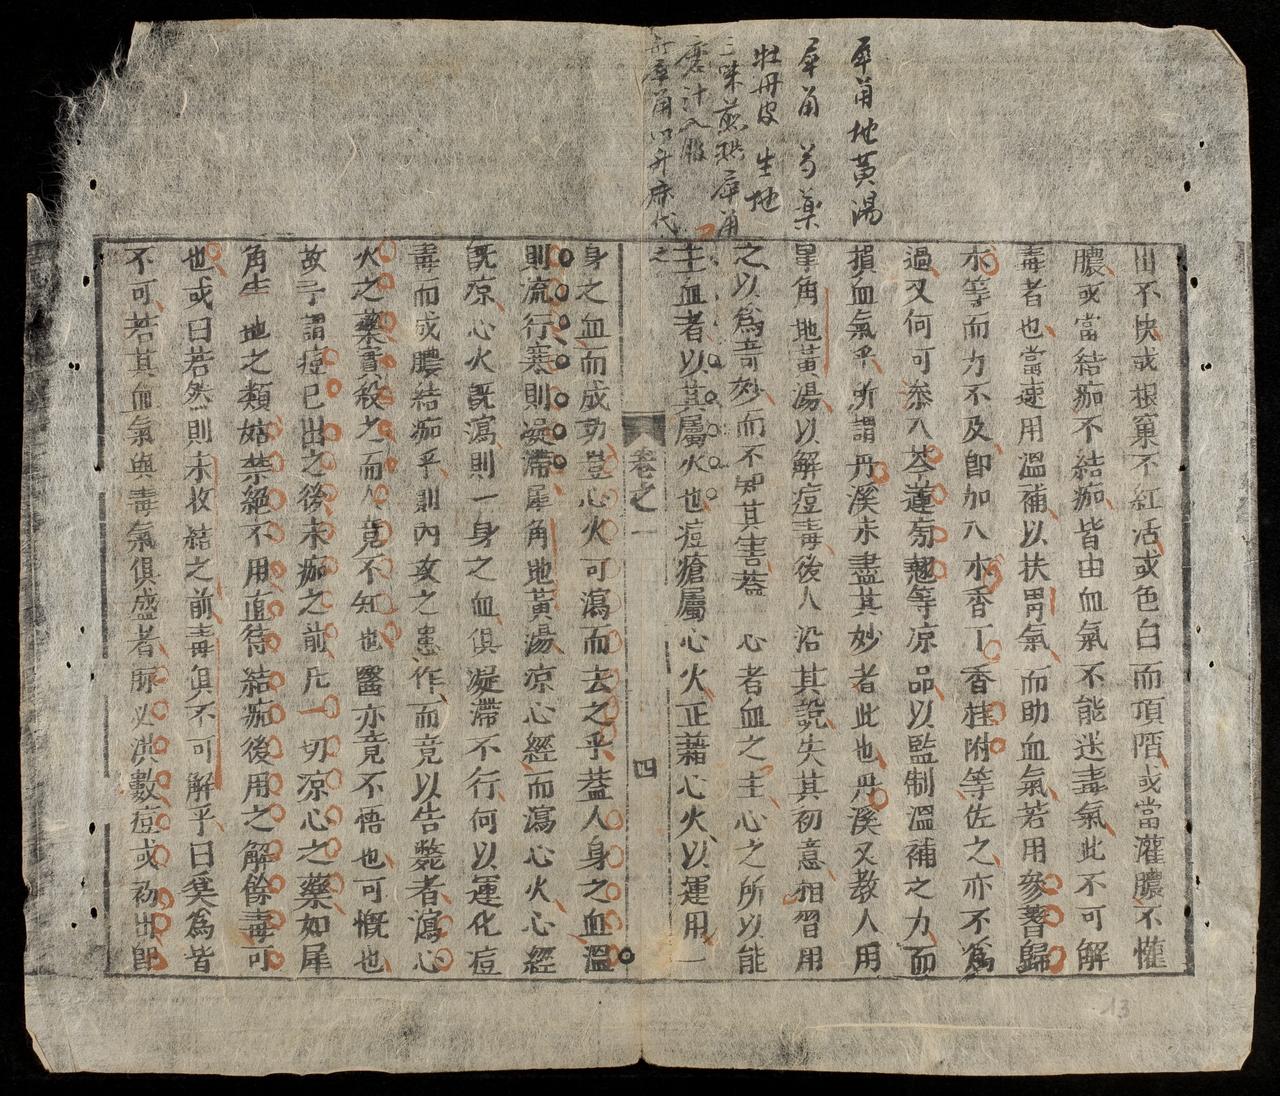 犀角地黃湯
犀角 芍藥
牡丹皮 生地
三味煎熟犀角
磨汁入服
無犀角以升麻代之
出不快或根窠不紅活或色白而頂陷或當灌膿不灌
膿或當結痂不結痂皆由血氣不能送毒氣此不可解
毒者也當速用溫補以扶胃氣而助血氣若用參蓍歸
朮等而力不及卽加入木香丁香桂附等佐之亦不為
過又何可叅入芩蓮芴翹等凉品以監制溫補之力而
損血氣乎所謂丹溪未盡其妙者此也丹溪又教人用
犀角地黃湯以解痘毒後人沿其說失其初意相習用
之以為竒妙而不知其害葢 心者血之主心之所以能
主血者以其屬火也痘瘡屬心火正藉心火以運用一
卷之一
四
身之血而成功豈心火可瀉而去之乎葢人身之血溫
則流行寒則凝滯犀角地黃湯凉心經而瀉心火心經
既凉心火既瀉則一身之血俱凝滯不行何以運化痘
毒而成膿結痂乎則內攻之患作而竟以告斃者瀉心
火之藥實殺之而人竟不知也醫亦竟不悟也可慨也
故予謂痘已出之後未痂之前凡一切凉心之藥如犀
角生地之類姑禁絕不用直待結痂後用之解餘毒可
也或曰若然則未收結之前毒俱不可解乎曰奚為皆
不可若其血氣與毒氣俱盛者脉必洪數痘或初出卽
13